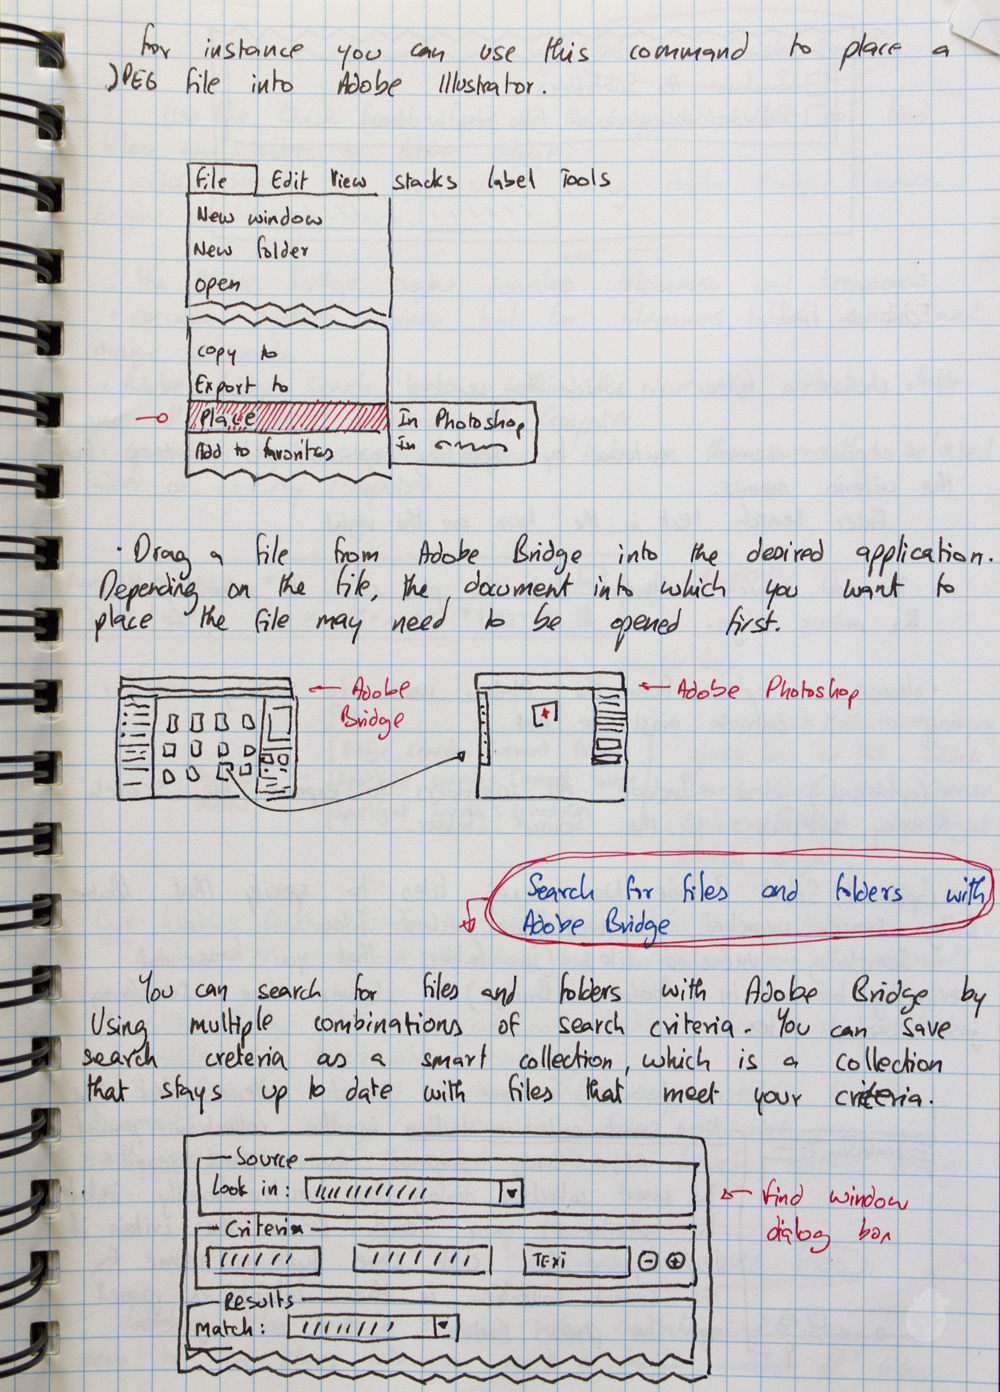 For instance you can use this command to place a
JPEG file into Adobe Illustrator.
File Edit View Stacks Label Tools
New window
New folder
open
copy to
Export to
Place
In Photoshop
Add to favorites
In
· Drag a file from Adobe Bridge into the desired application.
Depending on the file, the document into which you want to
place the file may need to be opened first.
Adobe
Bridge
Adobe Photoshop
Search for files and folders with
Adobe Bridge
You can search for files and folders with Adobe Bridge by
Using multiple combinations of search criteria. You can save
search creteria as a smart collection, which is a collection
that stays up to date with files that meet your criteria.
Source
Look in:
Find window
dialog box
Criteria
TExi
Results
Match: